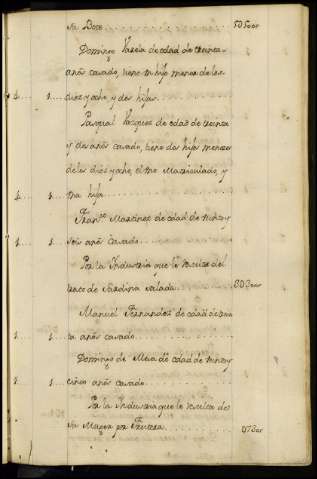 su Dote 505oar
Domingo Varela de edad de treinta
años casado, tiene un hijo menor de los
1 1 diez y ocho, y dos hijas
Pasqual Vazquez de edad de treinta
y dos años casado, tiene dos hijos menores
de los diez y ocho, el uno Matriculado, y
1 1 una hija
Franco Martinez de edad de veinte y
1 1 seis años casado
Por la Industria que le resulta del
de Sardina salada
Manuel Fernandez de edad de
1 1 ta años casado
Domingo de edad de veinte y
1 1 cinco años casado
Por la Industria que le resulta de
su Muger por